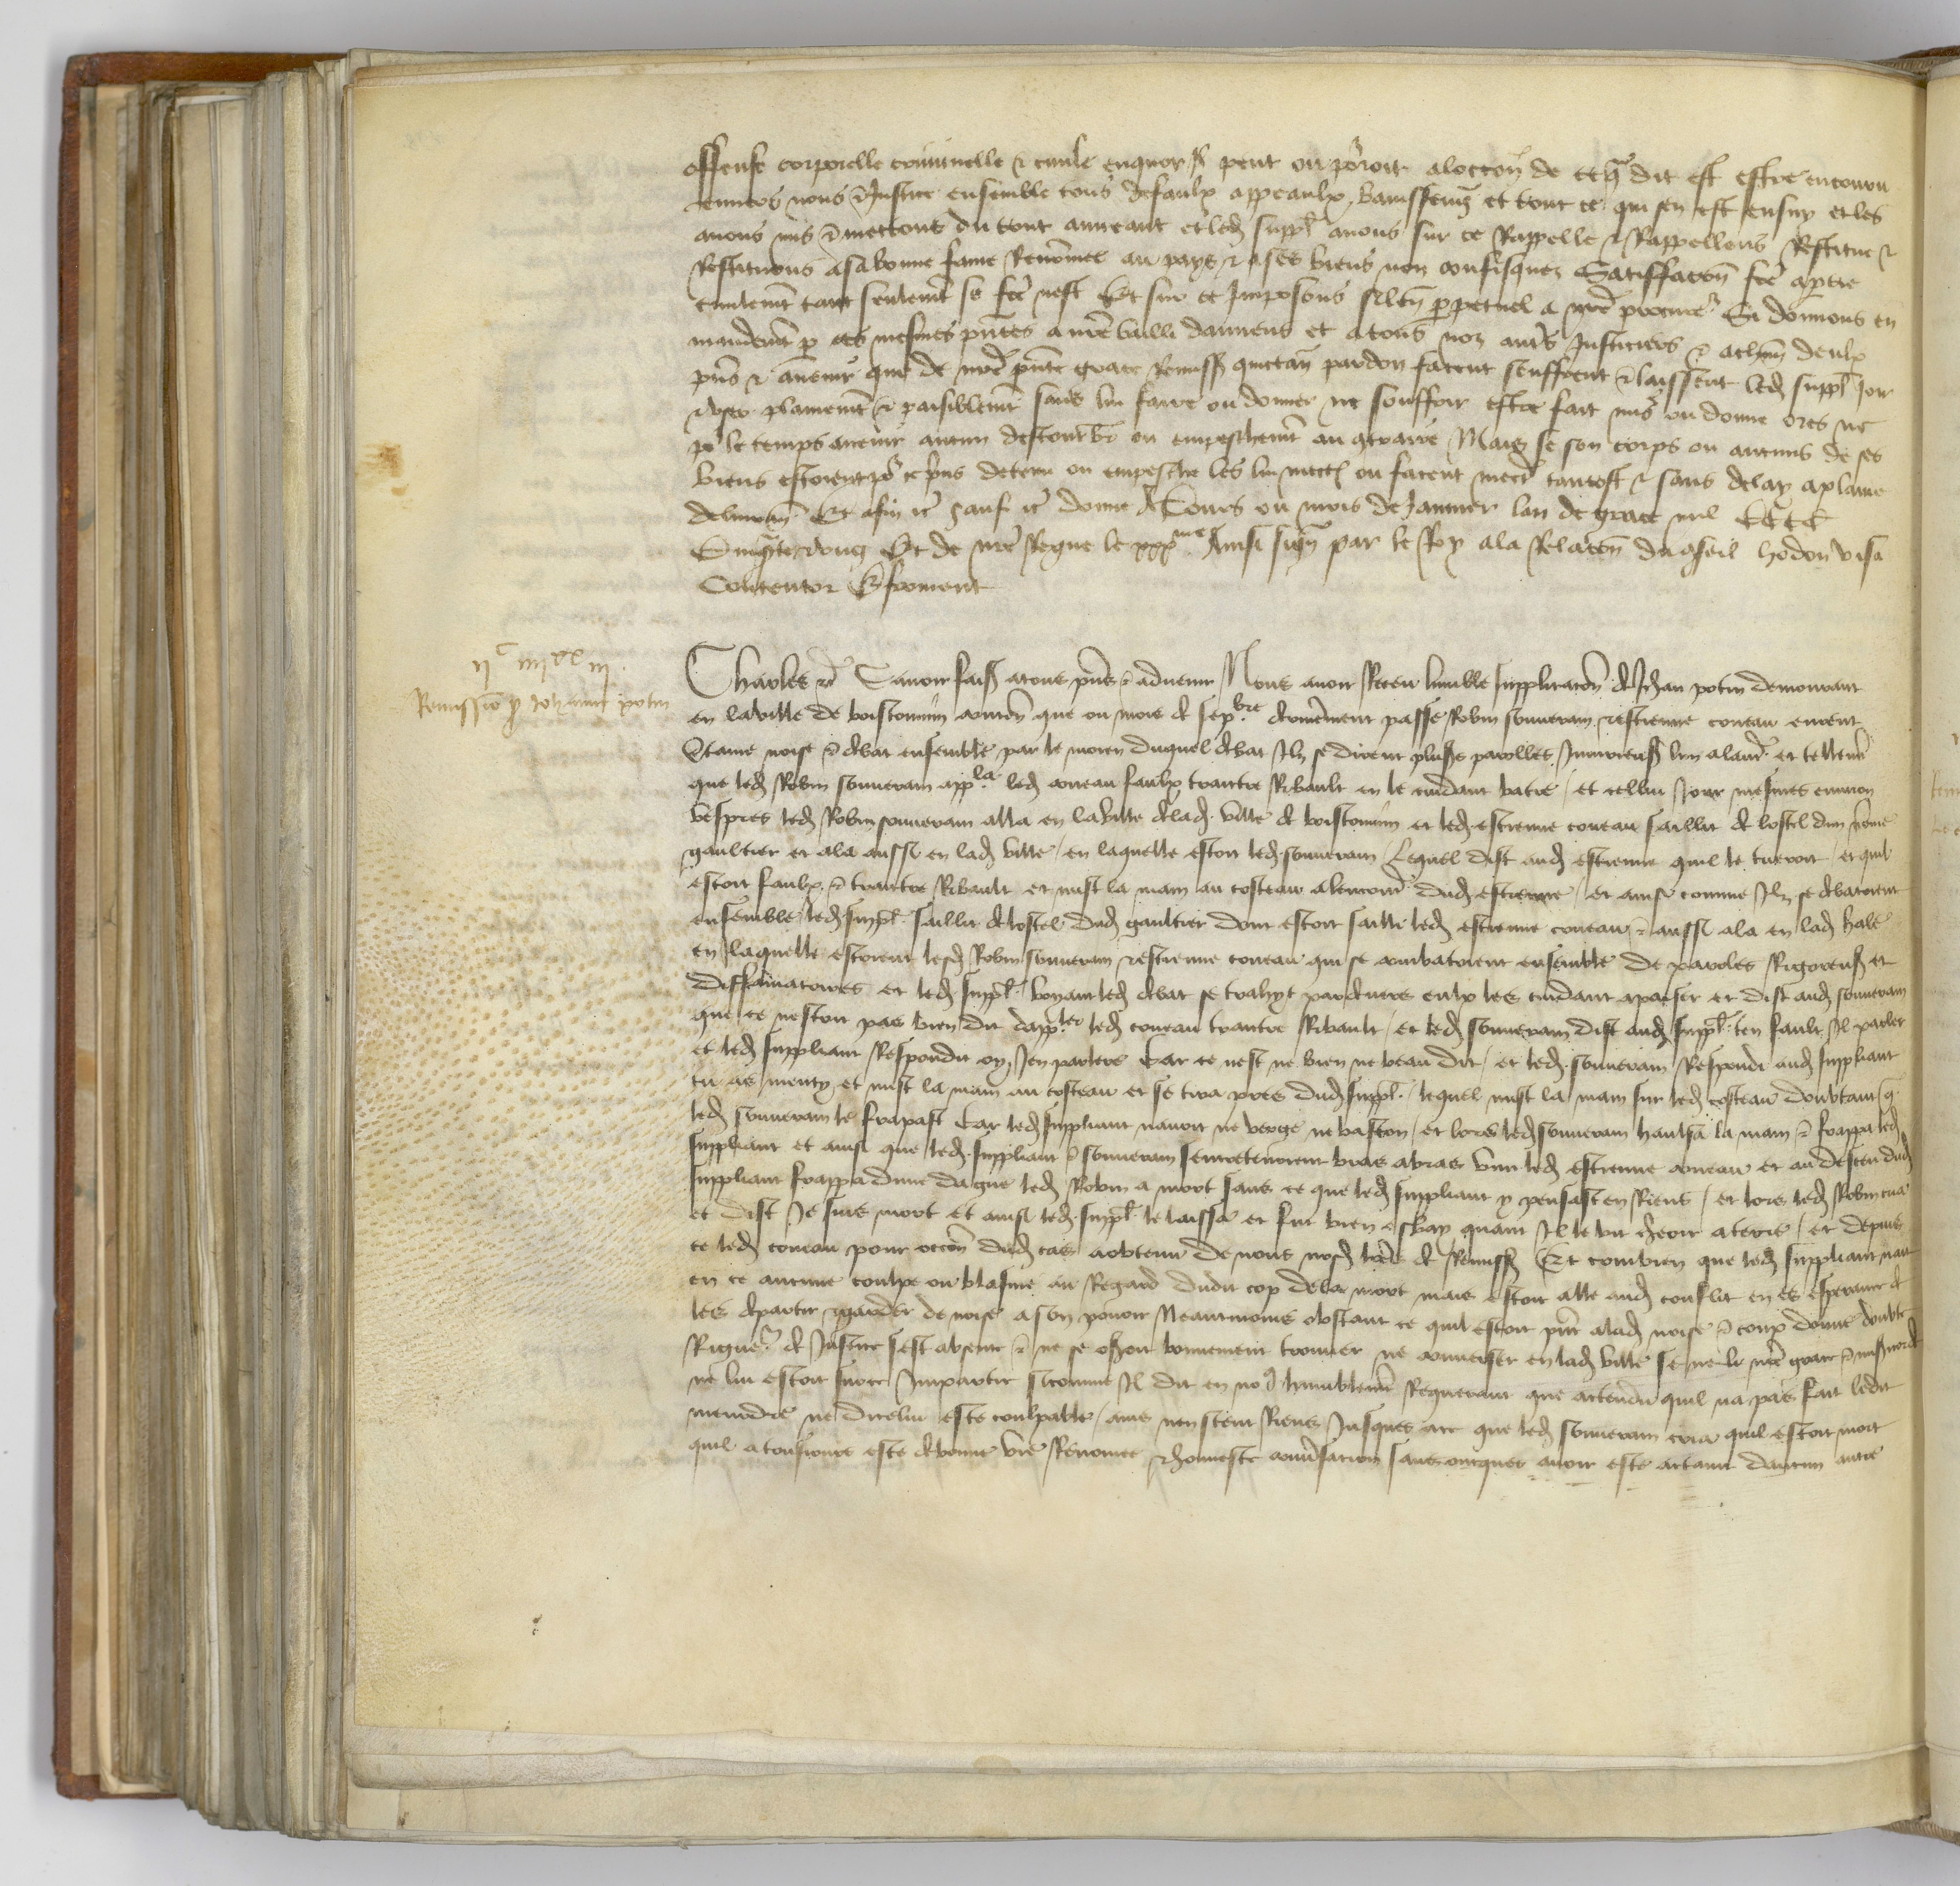 offense corporelle criminelle et civile enquoy il peut ou pourroit aloccon de ce dit est estre encouru
envers nous et Justice ensemble tous defaulx appeaulx bannissemens et tout ce qui sen est ensuy et les
avons mis et mectons du tout anneant et led suppl avons sur ce Rappelle et Rappellons Restitue et
Restituons asa bonne fame Renommee au pays et ases biens non confisquez Satisffaccon fce apartie
civilemt tant seulemt se fce nest Et sur ce Imposons sillence perpetuel a nre procureur Si donnons en
mandemt par ces mesmes pntes a nre bailli damiens et atous noz autres Justiciers et achun deulx
pns et avenir que de nre pnte grace Remiss quictance pardon facent seuffrent et laissent led suppl Joir
et user plainemt et paisiblemt sans lui faire ou donner ne souffrir estre fait mis ou donne ores ne
pour le temps avenir aucun destourbr ou empeschemt au contraire Mais se son corps ou aucuns de ses
biens estoient pour ce prins detenu ou empeschie les lui mectent ou facent mectre tantost et sans delay aplaine
delivrance Et afin etc sauf etc donne A Tours ou mois de Janvier lan de grace mil CCCC
Et de nre Regne le xxxme Ainsi signe par le Roy ala Relacon du conseil hodon visa
Contentor E froment
iic iiiixx iii
Remissio pro Johanne potin
Charles etc Savoir fais atous pns et advenir Nous avoir Receu lumble supplicacon de Jehan potin demourant
en laville de boistommin contenant que ou mois de Septbre derrenement passe Robin souverain et estienne coneau eurent
certaine noise et debat ensemble par le moien duquel debat Ilz se dirent plusrs parolles Iniurieuses lun alautre et tellemt
que led Robin souverain appla led coneau faulx traitre Ribault en le cuidant batre et cellui Jour mesmes environ
vespres led Robin souverain alla en la halle delad ville de boistommin et led estienne coneau saillit de lostel dun nomme
gaultier et ala aussi en lad ville en laquelle estoit led souverain Lequel dist aud estienne quil le tueroit et quil
estoit faulx et traitre Ribault et mist la main au costeau alencontre dud estienne et ainsi comme Ilz se debatoient
ensemble led suppl saillit de lostel dud gaultier dont estoit sailli led estienne coneau et aussi ala en lad hale
en laquelle estoient lesd Robin souverain et estienne coneau qui se combatoient ensemble de paroles Rigoreuses et
diffamatoires et led suppl voyant led debat se trahyt par devers eulx les cuidant apaiser et dist aud souverain
que ce nestoit pas bien dit dappler led coneau traitre Ribault et led souverain dist aud suppl ten fault Il parler
et led suppliant Respondit oy Jen parlere Car ce nest ne bien ne beau dit et led souverain Respondi aud suppliant
tu as menty et mist la main au costeau et se tira pres dud suppl lequel mist la main sur led costeau doubtant que
led souverain le frapast Car led suppliant navoit ne verge ne baston et lors led souverain haulsa la main et frappa led
suppliant et ainsi que led suppliant et souverain sentretenoient bras abras vint led estienne coneau et au desceu dud
suppliant frappa dune dague led Robin a mort sans ce que led suppliant y pensast en Riens et lors led Robin cria
et dist Je suis mort et ainsi led suppl le laissa et fut bien esbay quant Il le vit cheoir aterre et depuis
ce led coneau pour occon dud cas aobtenu de nous nosd lres de Remiss Et combien que led suppliant nait
en ce aucune coulpe ou blasme au Regard dudit cop dela mort mais estoit alle aud conflit en esperance de
les departir et garder de noise a son povoir Neantmoins obstant ce quil estoit pnt alad noise et coup donne doubte
Rigueur de Justice sest absente et ne se oseroit bonnement trouver ne converser en lad ville se ne li nre grace et misericorde
ne lui estoit sur ce Impartie sicomme Il dit en nous humblemt Requerant que actendu quil na pas fait ledit
meurdre ne dicelui este coulpable ains nen sceut Riens Jusques ace que led souverain cria quil estoit mort
quil atousjours este de bonne vie Renomee et honneste conversacion sans oncques avoir este actaint daucun autre